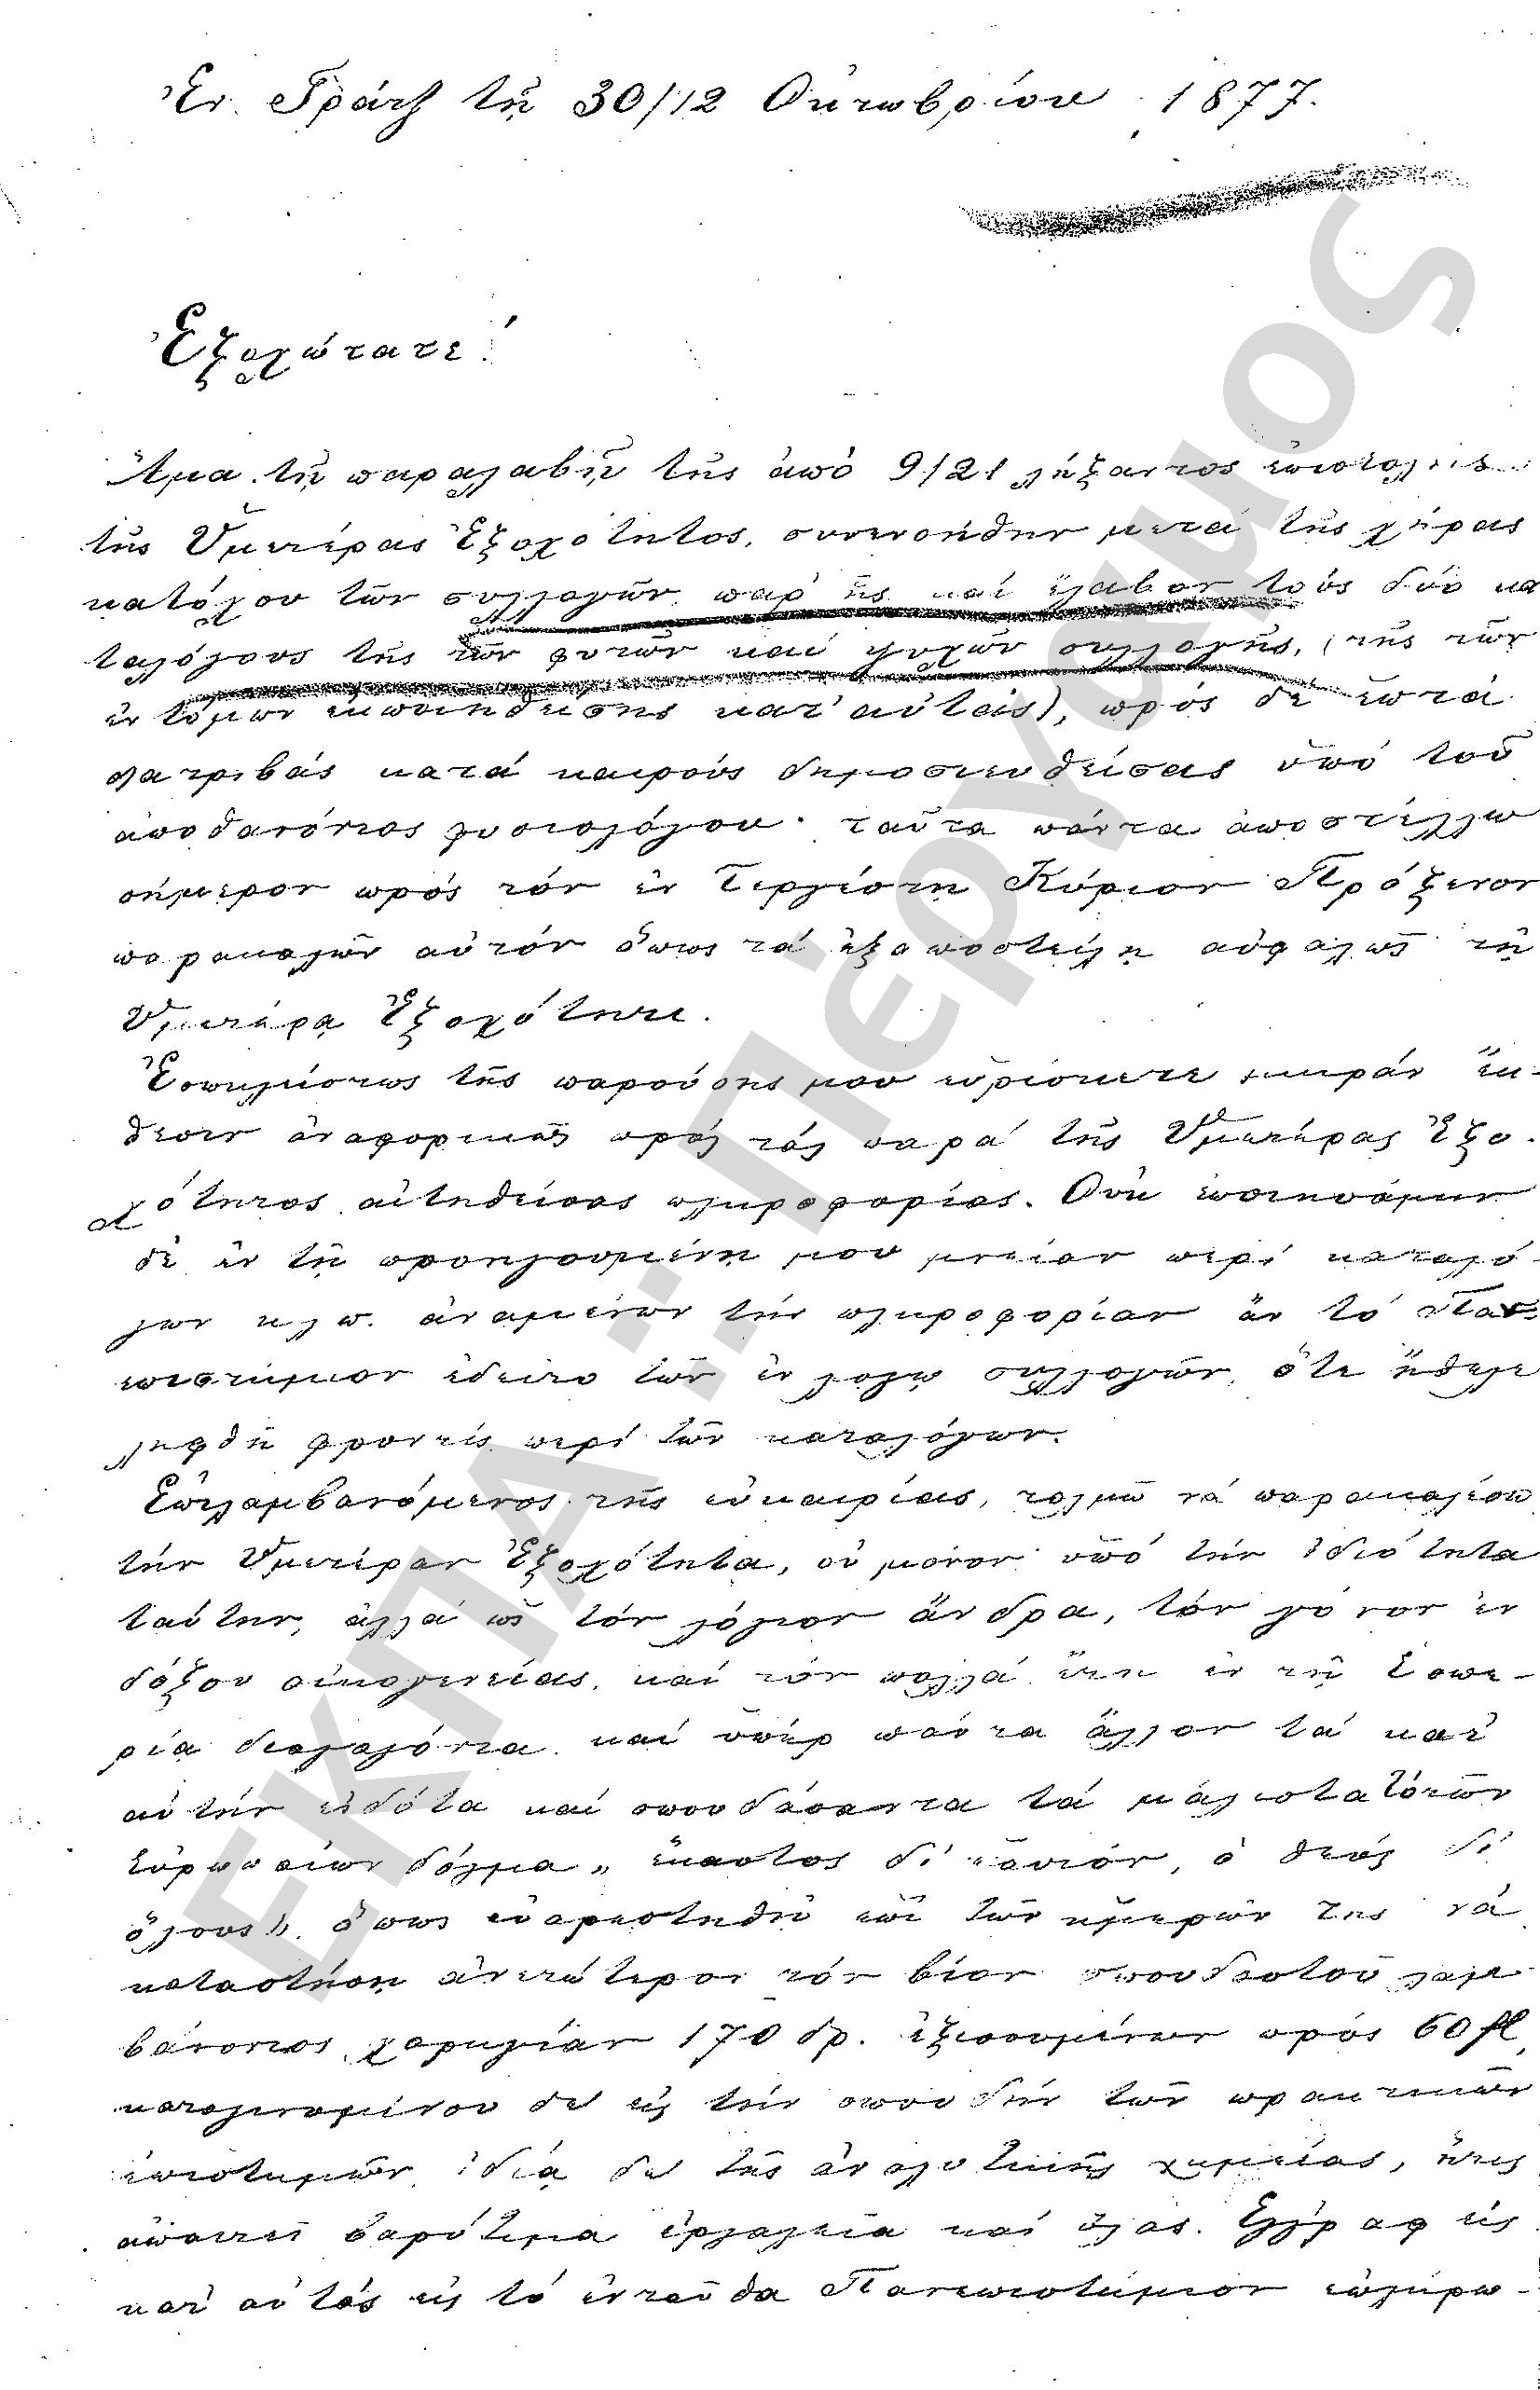 Ἐν Γράτζ τῇ 30/12 Ὀκτωβρίου 1877.
Ἐξοχώτατε!
Ἅμα τῇ παραλαβῇ τῆς ἀπὸ 9/21 λήξαντος ἐπιστολῆς
τῆς Ὑμετέρας Ἐξοχότητος, συνενοήθην μετὰ τῆς χήρας
κατόχου τῶν συλλογῶν, παρ' ἧς καὶ ἔλαβον τοὺς δύο κα
ταλόγους τῆς τῶν φυτῶν καὶ ψυχῶν συλλογῆς, (τῆς τῶν
ἐντόμων ἐκποιηθείσης κατ' αὐτὰς), πρὸς δὲ ἑπτὰ
διατριβὰς κατὰ καιροὺς δημοσιευθείσας ὑπὸ τοῦ
ἀποθανόντος φυσιολόγου· ταῦτα πάντα ἀποστέλλω
σήμερον πρὸς τὸν ἐν Τεργέστῃ Κύριον Πρόξενον
παρακαλῶν αὐτὸν ὅπως τὰ ἐξαποστείλῃ ἀσφαλῶς τῇ
Ὑμετέρᾳ Ἐξοχότητι.
Ἐσωκλείστως τῆς παρούσης μου εὑρίσκετε μικρὰν ἔκ-
θεσιν ἀναφορικῶς πρὸς τὰς παρὰ τῆς Ὑμετέρας Ἐξο-
χότητος αἰτηθείσας πληροφορίας. Οὐκ ἐποιησάμην
δὲ ἐν τῇ προηγουμένῃ μου μνείαν περὶ καταλό-
γων κλπ. ἀναμένων τὴν πληροφορίαν ἂν τὸ Παν-
επιστήμιον ἐδεῖτο τῶν ἐν λόγῳ συλλογῶν, ὅτε ἤθελε
ληφθῆ φροντὶς περὶ τῶν καταλόγων.
Ἐπιλαμβανόμενος τῆς εὐκαιρίας, τολμῶ νὰ παρακαλέσω
τὴν Ὑμετέραν Ἐξοχότητα, οὐ μόνον ὑπὸ τὴν ἰδιότητα
ταύτην, ἀλλὰ ὡς τὸν λόγιον ἄνδρα, τὸν γόνον ἐν
δόξου οἰκογενείας, καὶ τὸν πολλὰ ἔτη ἐν τῇ Ἑσπε-
ρίᾳ διαγαγόντα καὶ ὑπὲρ πάντα ἄλλον τὰ κατ'
αὐτὴν εἰδότα καὶ σπουδάσαντα τὰ μάλιστα τὸ τῶν
Εὐρωπαίων δόγμα „ ἕκαστος δι' ἑαυτόν, ὁ θεὸς δι'
ὅλους", ὅπως εὐαρεστηθῇ ἐπὶ τῶν ἡμερῶν της νὰ
καταστήσῃ ἀνετώτερον τὸν βίον σπουδαστοῦ λαμ
βάνοντος χορηγίαν 170 δρ. ἐξισουμένων πρὸς 60 fl,
καταγινομένου δὲ εἰς τὴν σπουδὴν τῶν πρακτικῶν
ἐπιστημῶν, ἰδίᾳ δὲ τῆς ἀναλυτικῆς χημείας, ἥτις
ἀπαιτεῖ βαρύτιμα ἐργαλεῖα καὶ ὕλας. Ἐγγραφεὶς
κατ' αὐτὰς εἰς τὸ ἐνταῦθα Πανεπιστήμιον ἐπλήρω-
ΕΚΠΑ: Πέργαμος